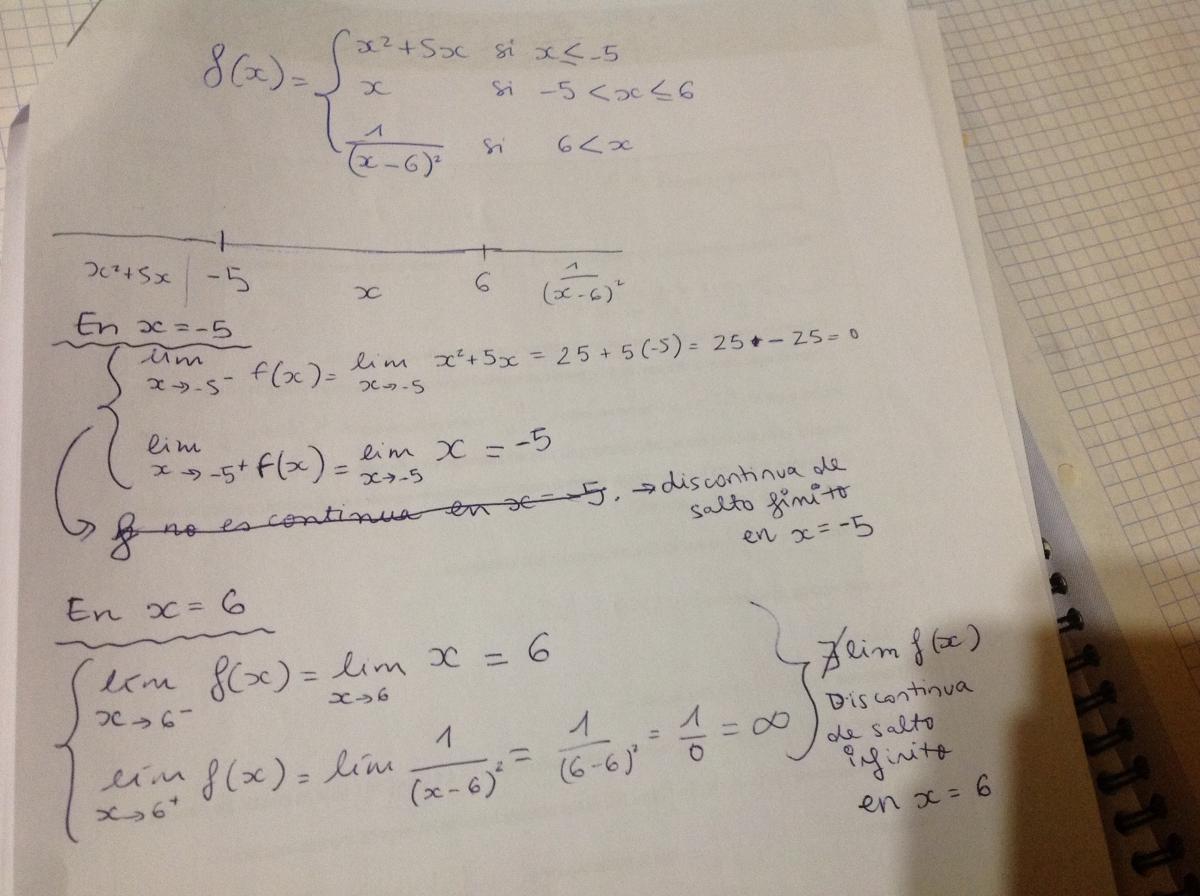 f(x) = { x²+5x si x ≤ -5
x si -5 < x ≤ 6
1/(x-6)² si 6 < x
x²+5x | -5 x 6 1/(x-6)²
En x = -5
lim x→-5⁻ f(x) = lim x→-5 x²+5x = 25 + 5(-5) = 25 - 25 = 0
lim x→-5⁺ f(x) = lim x→-5 x = -5
→ f no es continua en x = -5. → discontinua de
salto finito
en x = -5
En x = 6
lim x→6⁻ f(x) = lim x→6 x = 6
lim x→6⁺ f(x) = lim 1/(x-6)² = 1/(6-6)² = 1/0 = ∞
∄ lim f(x)
Discontinua
de salto
ifinito
en x = 6